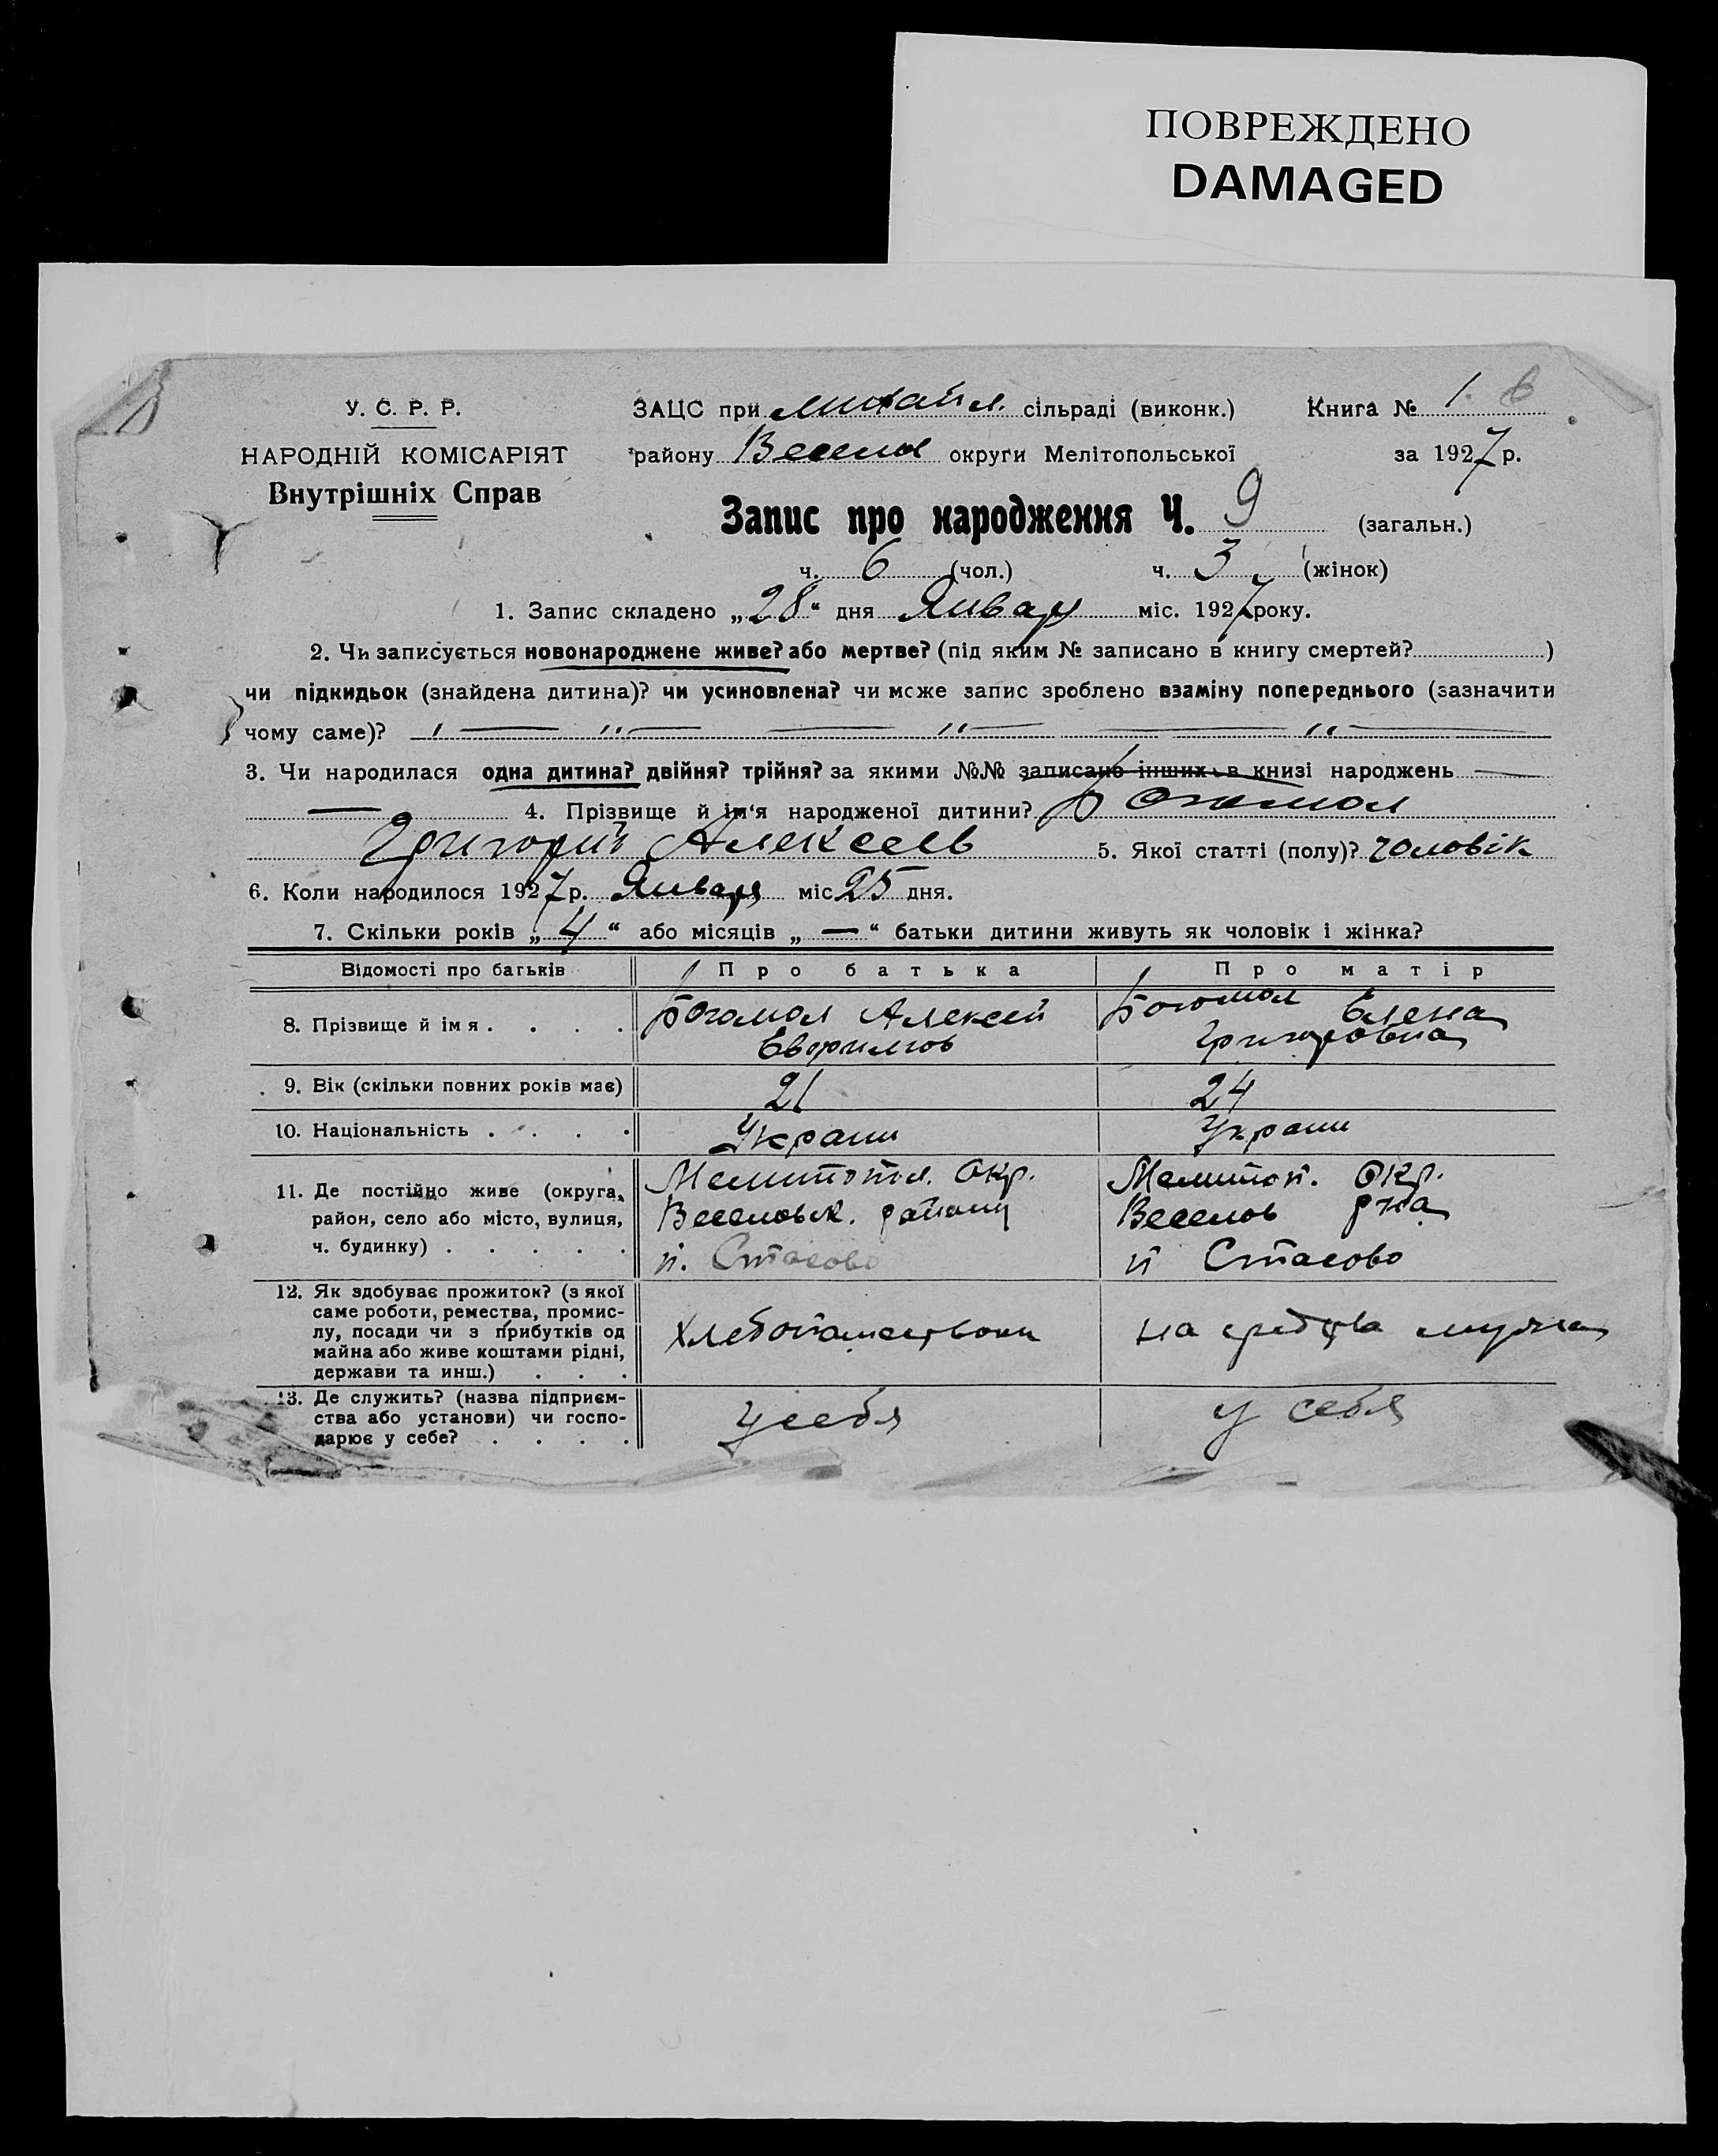 ПОВРЕЖДЕНО
DAMAGED
У. С. Р. Р.
НАРОДНІЙ КОМІСАРІЯТ
Внутрішніх Справ
ЗАЦС при Михайл. сільраді (виконк.) Книга № 1.
району Весел округи Мелітопольської за 1927 р.
Запис про народження Ч. 9 (загальн.)
ч. 6 (чол.) ч. 3 (жінок)
1. Запис складено „28“ дня Января міс. 1927 року.
2. Чи записується новонароджене живе? або мертве? (під яким № записано в книгу смертей? )
чи підкидьок (знайдена дитина)? чи усиновлена? чи може запис зроблено взаміну попереднього (зазначити
чому саме)? — „ — — „ — — „ —
3. Чи народилася одна дитина? двійня? трійня? за якими №№ записано інших в книзі народжень —
— 4. Прізвище й ім‘я народженої дитини? Богомол
Григорий Алексеев 5. Якої статті (полу)? чоловік
6. Коли народилося 1927 р. Января міс 25 дня.
7. Скільки років „4“ або місяців „—“ батьки дитини живуть як чоловік і жінка?
Відомості про батьків Про батька Про матір
8. Прізвище й імя . . . . Богомол Алексей Богомол Елена
Евфимов Григоровна
9. Вік (скільки повних років має) 21 24
10. Національність . . . . Украин Украин
11. Де постійно живе (округа, Мелитопол. Окр. Мелитоп. Окр.
район, село або місто, вулиця, Веселовск. району Веселов р-на
ч. будинку) . . . . . п. Стасово п Стасово
12. Як здобуває прожиток? (з якої
саме роботи, ремества, промис-
лу, посади чи з прибутків од Хлебопашеством на средства мужа
майна або живе коштами рідні,
держави та инш.) . . .
13. Де служить? (назва підприєм-
ства або установи) чи госпо- у себя у себя
дарює у себе? . . . .